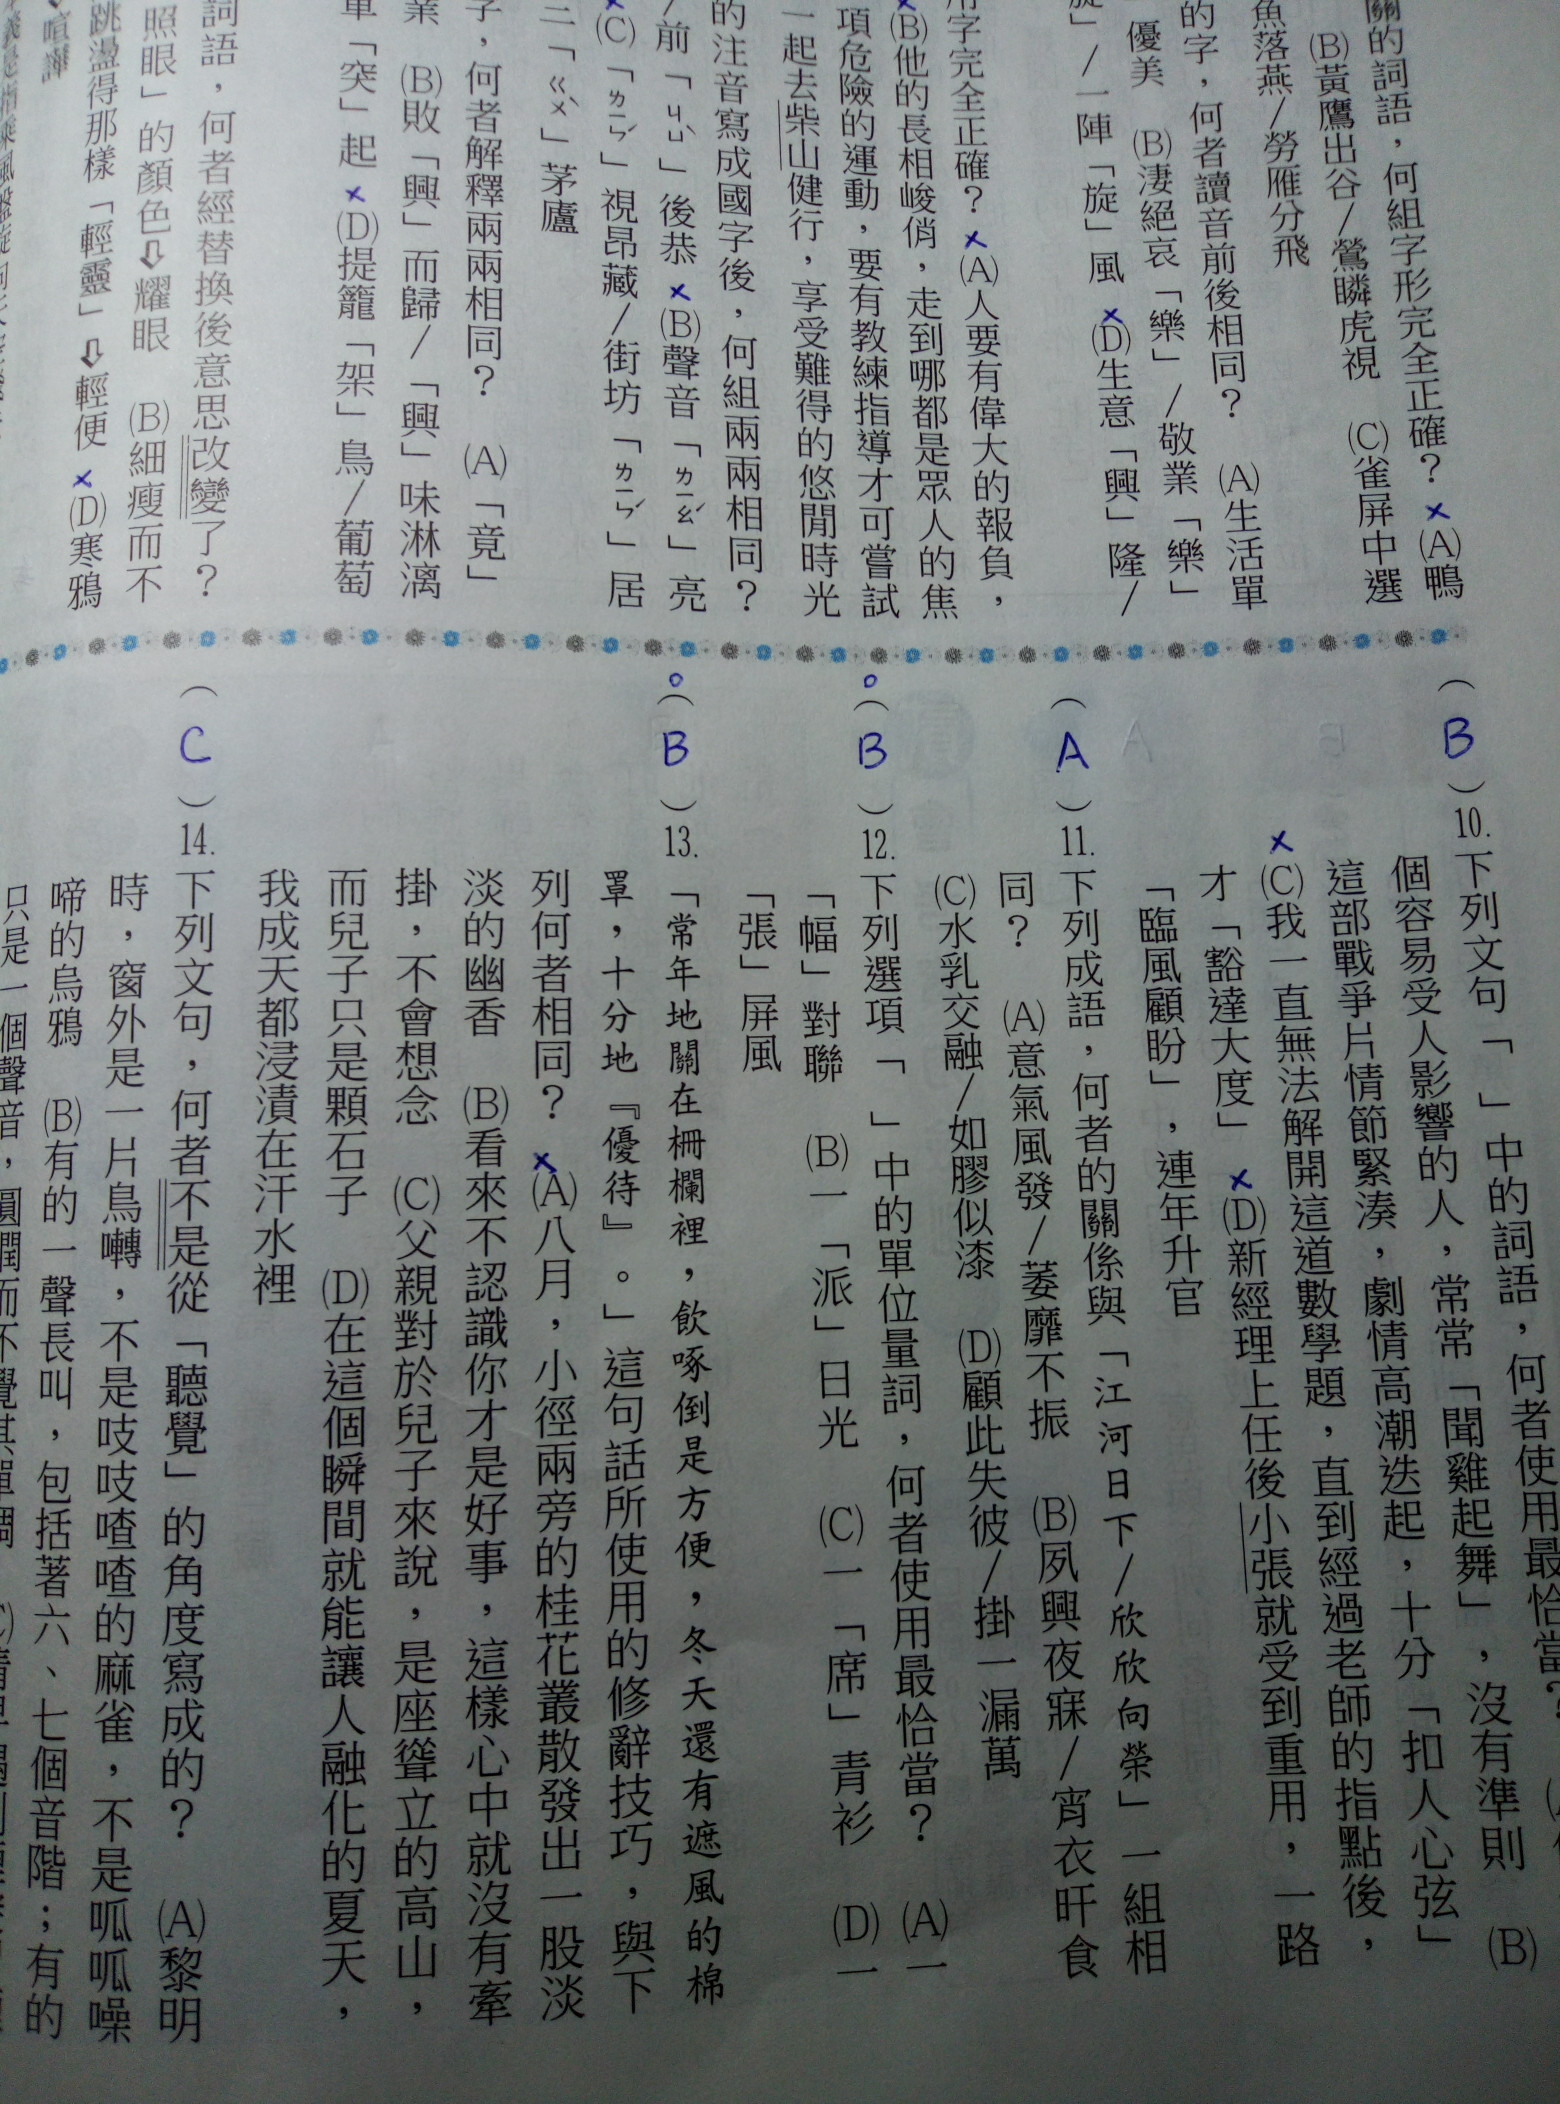 關的詞語，何組字形完全正確？ × (A)鴨
(B)黃鷹出谷/鶯瞵虎視 (C)雀屏中選
魚落燕/勞雁分飛
的字，何者讀音前後相同？ (A)生活單
優美 (B)淒絕哀「樂」/敬業「樂」
/一陣「旋」風 ×(D)生意「興」隆/
用字完全正確？ ×(A)人要有偉大的報負，
×(B)他的長相峻俏，走到哪都是眾人的焦
項危險的運動，要有教練指導才可嘗試
一起去柴山健行，享受難得的悠閒時光
的注音寫成國字後，何組兩兩相同？
/前「ㄐㄩˋ」後恭 ×(B)聲音「ㄌㄧㄠˊ」亮
×(C)「ㄌㄧㄣˊ」視昂藏/街坊「ㄌㄧㄣˊ」居
三「ㄍㄨˋ」茅廬
字，何者解釋兩兩相同？ (A)「竟」
業 (B)敗「興」而歸/「興」味淋漓
單「突」起 ×(D)提籠「架」鳥/葡萄
詞語，何者經替換後意思改變了？
照眼」的顏色⇨耀眼 (B)細瘦而不
跳盪得那樣「輕靈」⇨輕便 ×(D)寒鴉
喧譁
(B)10.下列文句「 」中的詞語，何者使用最恰當？
個容易受人影響的人，常常「聞雞起舞」，沒有準則 (B)
這部戰爭片情節緊湊，劇情高潮迭起，十分「扣人心弦」
×(C)我一直無法解開這道數學題，直到經過老師的指點後，
才「豁達大度」 ×(D)新經理上任後小張就受到重用，一路
「臨風顧盼」，連年升官
(A)11.下列成語，何者的關係與「江河日下/欣欣向榮」一組相
同？ (A)意氣風發/萎靡不振 (B)夙興夜寐/宵衣旰食
(C)水乳交融/如膠似漆 (D)顧此失彼/掛一漏萬
(B)12.下列選項「 」中的單位量詞，何者使用最恰當？ (A)一
「幅」對聯 (B)一「派」日光 (C)一「席」青衫 (D)一
「張」屏風
(B)13.「常年地關在柵欄裡，飲啄倒是方便，冬天還有遮風的棉
罩，十分地『優待』。」這句話所使用的修辭技巧，與下
列何者相同？ ×(A)八月，小徑兩旁的桂花叢散發出一股淡
淡的幽香 (B)看來不認識你才是好事，這樣心中就沒有牽
掛，不會想念 (C)父親對於兒子來說，是座聳立的高山，
而兒子只是顆石子 (D)在這個瞬間就能讓人融化的夏天，
我成天都浸漬在汗水裡
(C)14.下列文句，何者不是從「聽覺」的角度寫成的？ (A)黎明
時，窗外是一片鳥囀，不是吱吱喳喳的麻雀，不是呱呱噪
啼的烏鴉 (B)有的一聲長叫，包括著六、七個音階；有的
只是一個聲音，圓潤而不覺其單調